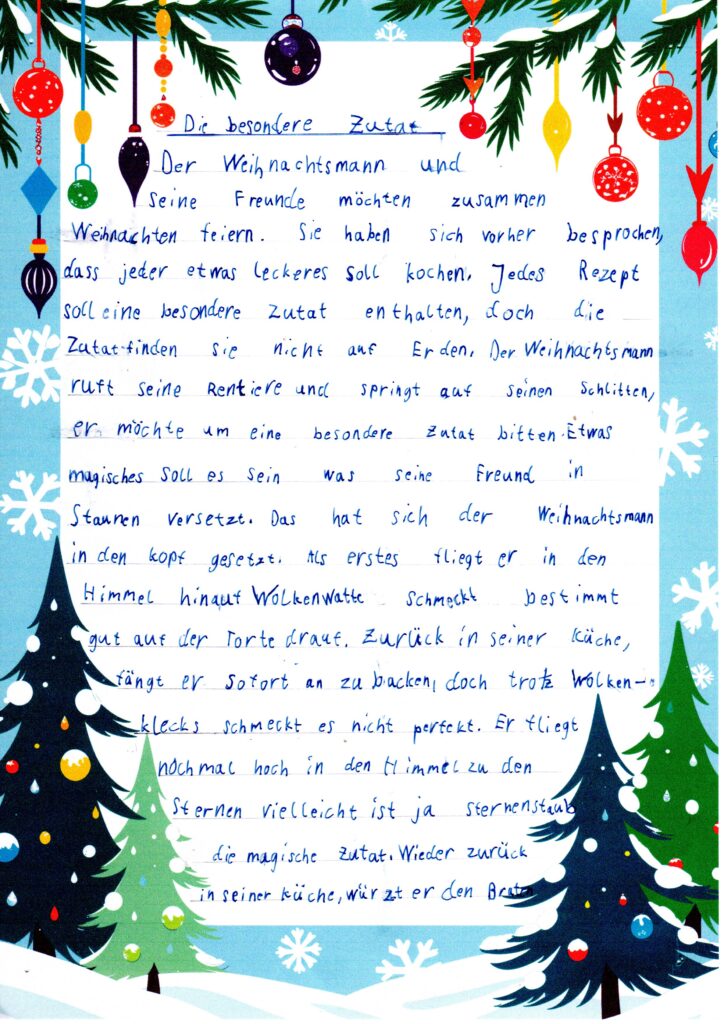 Die besondere Zutat
Der Weihnachtsmann und
seine Freunde möchten zusammen
Weihnachten feiern. Sie haben sich vorher besprochen,
dass jeder etwas leckeres soll kochen. Jedes Rezept
soll eine besondere Zutat enthalten, doch die
Zutat finden sie nicht auf Erden. Der Weihnachtsmann
ruft seine Rentiere und springt auf seinen Schlitten,
er möchte um eine besondere Zutat bitten. Etwas
magisches soll es sein was seine Freund in
Staunen versetzt. Das hat sich der Weihnachtsmann
in den kopf gesetzt. Als erstes fliegt er in den
Himmel hinauf Wolkenwatte schmeckt bestimmt
gut auf der Torte drauf. Zurück in seiner Küche,
fängt er sofort an zu backen, doch trotz Wolken-
klecks schmeckt es nicht perfekt. Er fliegt
nochmal hoch in den Himmel zu den
Sternen vielleicht ist ja sternenstaub
die magische Zutat. Wieder zurück
in seiner küche, würzt er den Braten